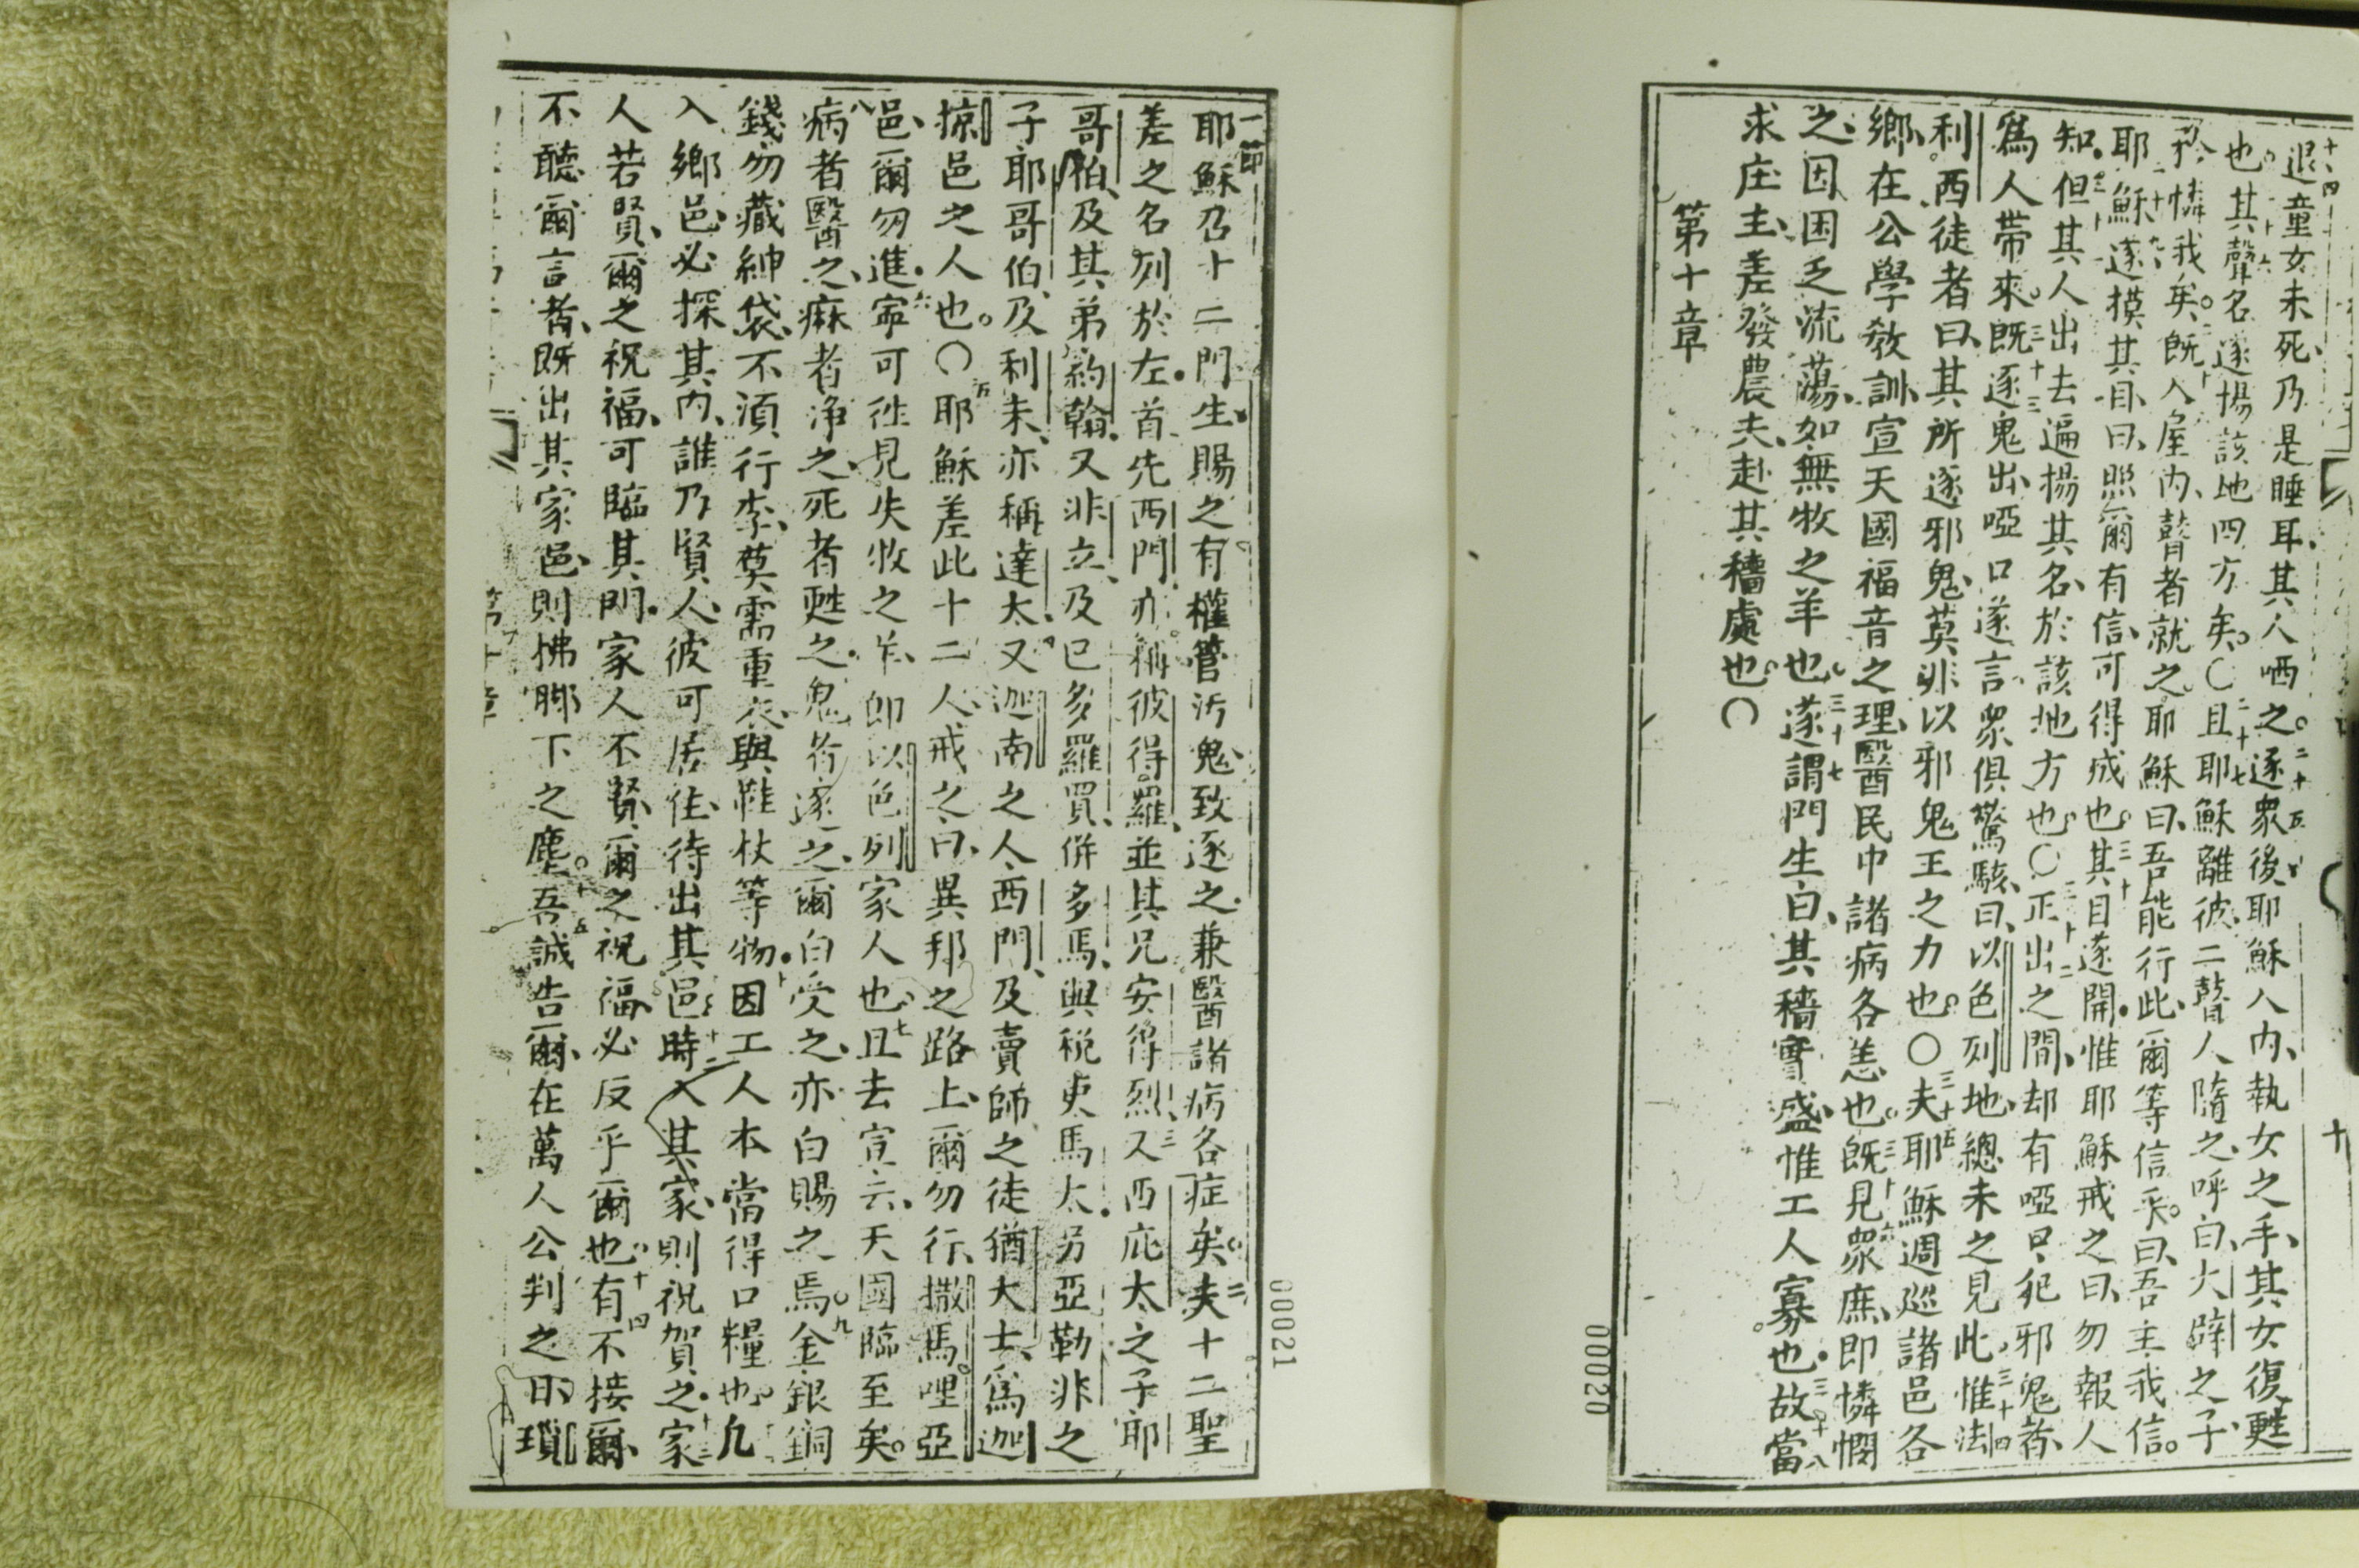 退童女未死乃是睡耳其人哂之逐衆後耶穌入內執女之手其女復甦
也其聲名遂揚該地四方矣○且耶穌離彼二瞽人隨之呼白大辟之子
憐我矣既入屋內瞽者就之耶穌曰吾能行此爾等信乎曰吾主我信
耶穌遂摸其目曰照爾有信可得成也其目遂開惟耶穌戒之曰勿報人
知但其人出去遍揚其名於該地方也○正出之間却有啞口犯邪鬼者
爲人帶來既逐鬼出啞口遂言衆俱驚駭曰以色列地總未之見此惟法
利西徒者曰其所逐邪鬼莫非以邪鬼王之力也○夫耶穌週廵諸邑各
鄉在公學教訓宣天國福音之理醫民中諸病各恙也既見衆庶即憐憫
之因困乏流蕩如無牧之羊也遂謂門生白其穡實盛惟工人寡也故當
求庄主差發農夫赴其穡處也○
第十章
十
00020
一節
耶穌乃十二門生賜之有權管汚鬼致逐之兼醫諸病各症矣夫十二聖
差之名列於左首先西門亦稱彼得羅並其兄安得烈又西庇太之子耶
哥伯及其弟約翰又非立及巴多羅買併多馬與稅吏馬太另亞勒非之
子耶哥伯及利未亦稱達太又迦南之人西門及賣師之徒猶大士爲迦
掠邑之人也○耶穌差此十二人戒之曰異邦之路上爾勿行撒馬哩亞
邑爾勿進寧可徃見失牧之羊即以色列家人也且去宣云天國臨至矣
病者醫之痳者净之死者甦之鬼者逐之爾白受之亦白賜之焉金銀銅
錢勿藏紳袋不須行李莫需重衣與鞋杖等物因工人本當得口糧也凡
入鄉邑必探其內誰乃賢人彼可居住待出其邑時入其家則祝賀之家
人若賢爾之祝福可臨其門家人不賢爾之祝福必反乎爾也有不接爾
不聽爾言者既出其家邑則拂腳下之塵吾誠告爾在萬人公判之日瑣
第十章
00021